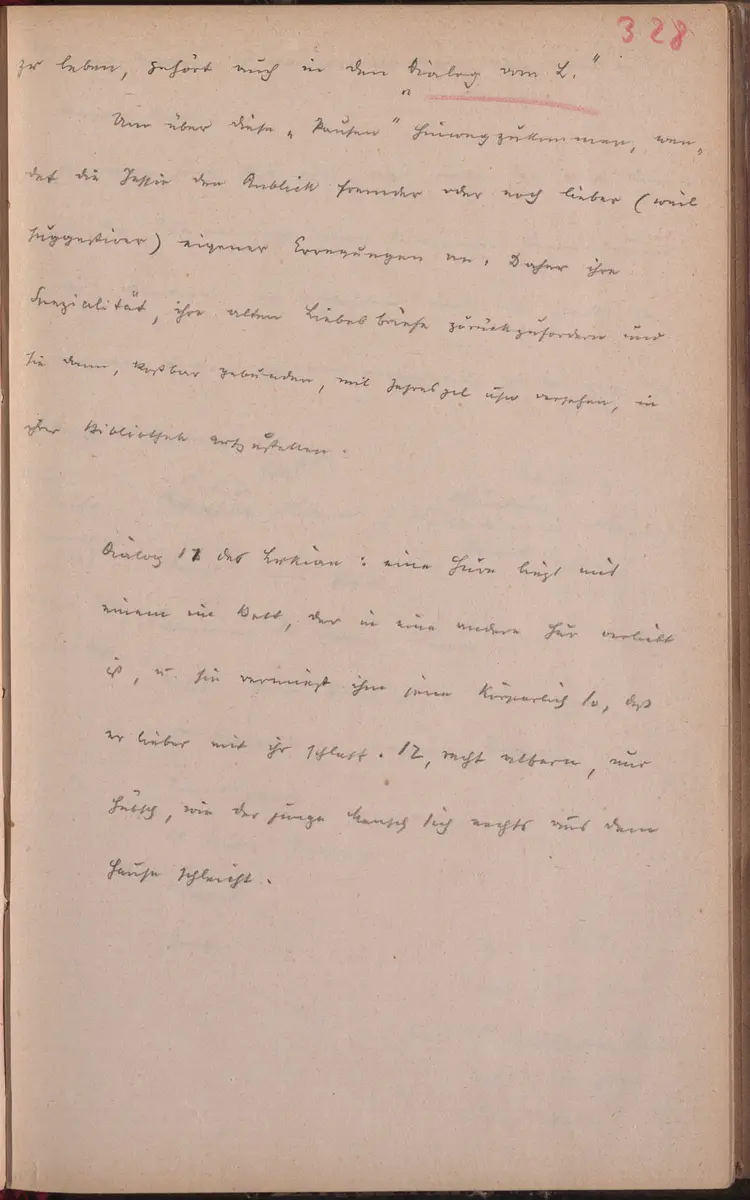 328
zu leben, gehört auch in den „Dialog vom L."
Um über diese „Pausen" hinwegzukommen, wen-
det die Jessie den Anblick fremder oder noch lieber (weil
suggestiver) eigener Erregungen an. Daher ihre
Spezialität, ihre alten Liebesbriefe zurückzufordern und
sie dann, kostbar gebunden, mit Jahreszal usw versehen, in
ihrer Bibliothek aufzustellen.
Dialog 11 des Lukian: eine Hure liegt mit
einem im Bett, der in eine andere Hur verliebt
ist, u. sie vermiest ihm jene körperlich so, daß
er lieber mit ihr schlaft. 12, recht albern, nur
hübsch, wie der junge Mensch sich nachts aus dem
Hause schleicht.